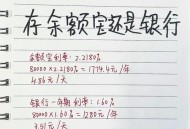 存余额宝还是银行
余额宝利率：2.2180%
80000×2.2180%=1774.4元/年
4.86元/天
银行一年期利率：1.60%
80000×1.60%=1280元/年
3.51元/天